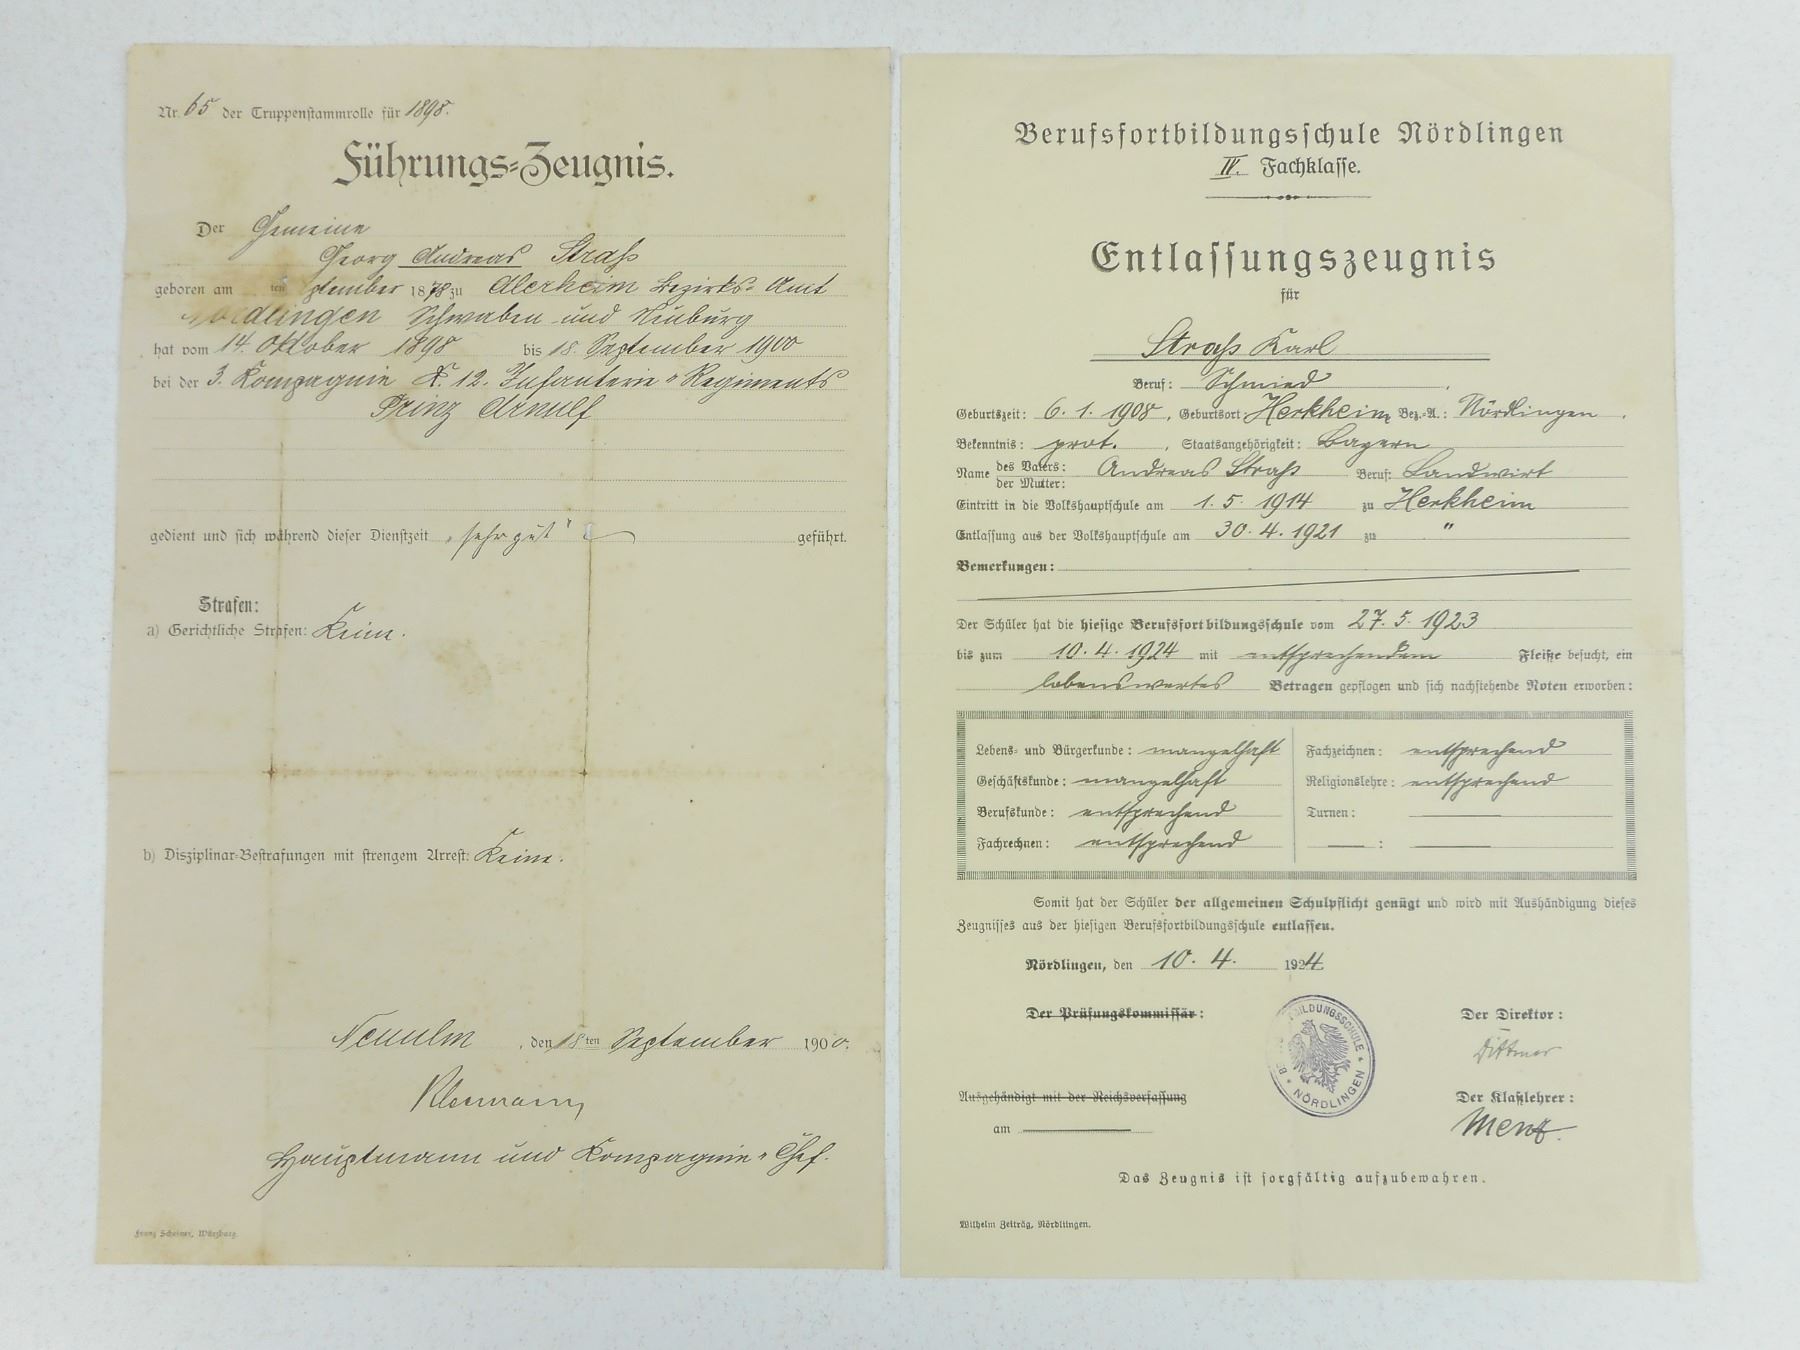 Nr. 65 der Truppenstammrolle für 1898.
Führungs-Zeugnis.
Der Gemeine
Georg Andreas Straß
geboren am ten ptember 1878 zu Alerheim Bezirks-Amt
Nördlingen Schwaben und Neuburg
hat vom 14. Oktober 1898 bis 18. September 1900
bei der 3. Kompagnie K. 12. Infanterie-Regiments
Prinz Arnulf
gedient und sich während dieser Dienstzeit „sehr gut" geführt.
Strafen:
a) Gerichtliche Strafen: Keine.
b) Disziplinar-Bestrafungen mit strengem Arrest: Keine.
Neuulm, den 18ten September 1900.
Hauptmann und Kompagnie-Chef.
Franz Scheiner, Würzburg.
Berufsfortbildungsschule Nördlingen
IV. Fachklasse.
Entlassungszeugnis
für
Straß Karl
Beruf: Schmied.
Geburtszeit: 6. 1. 1908, Geburtsort: Herkheim, Bez.-A.: Nördlingen.
Bekenntnis: prot., Staatsangehörigkeit: Bayern
Name des Vaters: Andreas Straß Beruf: Landwirt
der Mutter:
Eintritt in die Volkshauptschule am 1. 5. 1914 zu Herkheim
Entlassung aus der Volkshauptschule am 30. 4. 1921 zu "
Bemerkungen:
Der Schüler hat die hiesige Berufsfortbildungsschule vom 27. 5. 1923
bis zum 10. 4. 1924 mit entsprechendem Fleiße besucht, ein
lobenswertes Betragen gepflogen und sich nachstehende Noten erworben:
Lebens- und Bürgerkunde: mangelhaft
Geschäftskunde: mangelhaft
Berufskunde: entsprechend
Fachrechnen: entsprechend
Fachzeichnen: entsprechend
Religionslehre: entsprechend
Turnen: —
— : —
Somit hat der Schüler der allgemeinen Schulpflicht genügt und wird mit Aushändigung dieses
Zeugnisses aus der hiesigen Berufsfortbildungsschule entlassen.
Nördlingen, den 10. 4. 1924
Der Prüfungskommissär:
Der Direktor:
Dittmar
BILDUNGSSCHULE * NÖRDLINGEN *
Ausgehändigt mit der Reichsverfassung
am
Der Klaßlehrer:
Das Zeugnis ist sorgfältig aufzubewahren.
Wilhelm Zeiträg, Nördlingen.